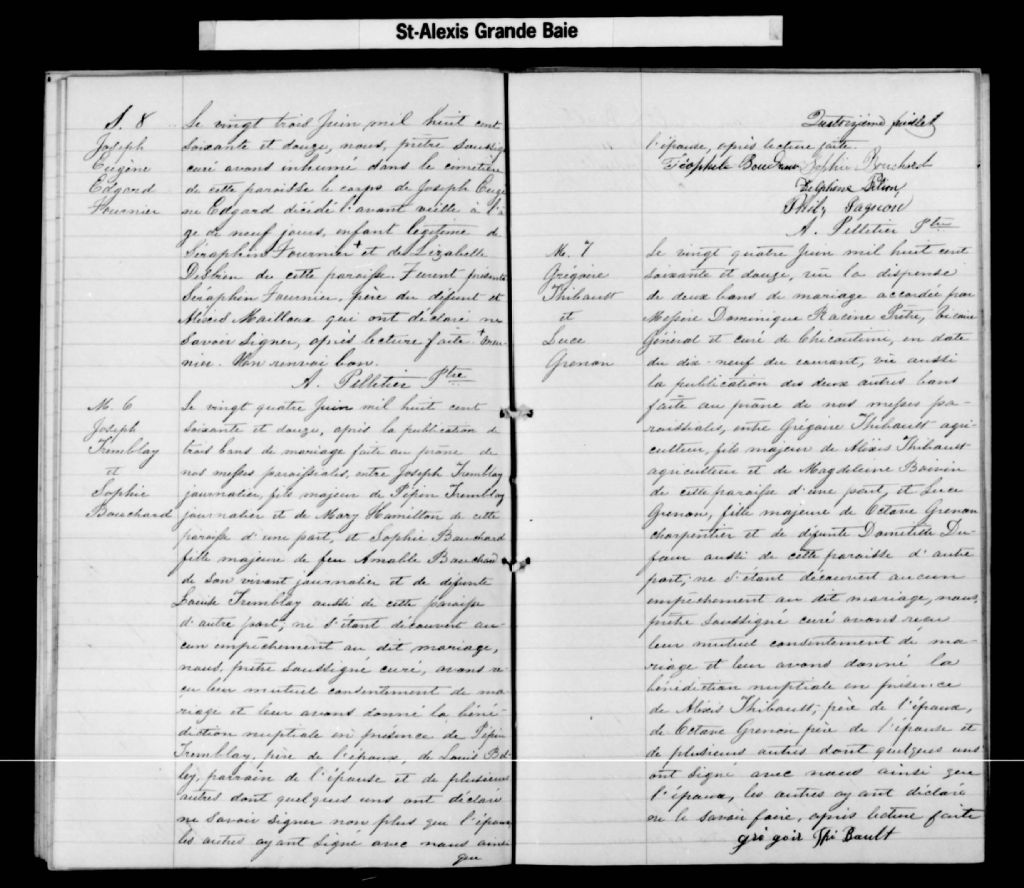 St-Alexis Grande Baie
S. 8
Joseph
Eugène
Edgard
Fournier
Le vingt trois Juin mil huit cent
soixante et douze, nous, prêtre soussig
curé avons inhumé dans le cimetière
de cette paroisse le corps de Joseph Eugè
ne Edgard décédé l'avant veille à l'â
ge de neuf jours, enfant légitime de
Séraphin Fournier + et de Lizabelle
de cette paroisse. Furent présents
Séraphin Fournier, père du défunt et
Alexis Mailloux qui ont déclaré ne
savoir signer, après lecture faite. +
nier. Un renvoi bon.
A. Pelletier Ptre
M. 6
Joseph
Tremblay
et
Sophie
Bouchard
Le vingt quatre Juin mil huit cent
soixante et douze, après la publication de
trois bans de mariage faite au prône de
nos messes paroissiales, entre Joseph Tremblay
journalier, fils majeur de Pépin Tremblay
journalier et de Mary Hamilton de cette
paroisse d'une part, et Sophie Bouchard
fille majeure de feu Amable Bouchard
de son vivant journalier et de défunte
Louise Tremblay aussi de cette paroisse
d'autre part; ne s'étant découvert au-
cun empêchement au dit mariage,
nous, prêtre soussigné curé, avons re
çu leur mutuel consentement de ma
riage et leur avons donné la béné
diction nuptiale en présence de Pépin
Tremblay, père de l'époux, de Louis
parrain de l'épouse et de plusieurs
autres dont quelques uns ont déclaré
ne savoir signer non plus que l'époux
les autres ayant signé avec nous ainsi
que
feuillet
l'épouse, après lecture faite.
Théophile Boudreau Sophie Bouchard
Delphine
A. Pelletier Ptre
M. 7
Grégoire
Thibault
et
Luce
Grenon
Le vingt quatre Juin mil huit cent
soixante et douze, vu la dispense
de deux bans de mariage accordée par
Messire Dominique Racine Prêtre, Vicaire
Général et curé de Chicoutimi, en date
du dix-neuf du courant, vu aussi
la publication des deux autres bans
faite au prône de nos messes pa-
roissiales, entre Grégoire Thibault agri-
culteur, fils majeur de Alexis Thibault
agriculteur et de Magdeleine Boivin
de cette paroisse d'une part, et Luce
Grenon, fille majeure de Octave Grenon
charpentier et de défunte Domitille Du
four aussi de cette paroisse d'autre
part; ne s'étant découvert aucun
empêchement au dit mariage, nous,
prêtre soussigné curé avons reçu
leur mutuel consentement de ma-
riage et leur avons donné la
bénédiction nuptiale en présence
de Alexis Thibault, père de l'époux,
de Octave Grenon père de l'épouse et
de plusieurs autres dont quelques uns
ont signé avec nous ainsi que
l'époux, les autres ayant déclaré
ne le savoir faire, après lecture faite
gré goir Thi Bault